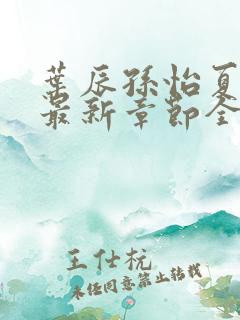 葉辰孫怡夏
最新章節全
王仕杬
未经同意禁止转载